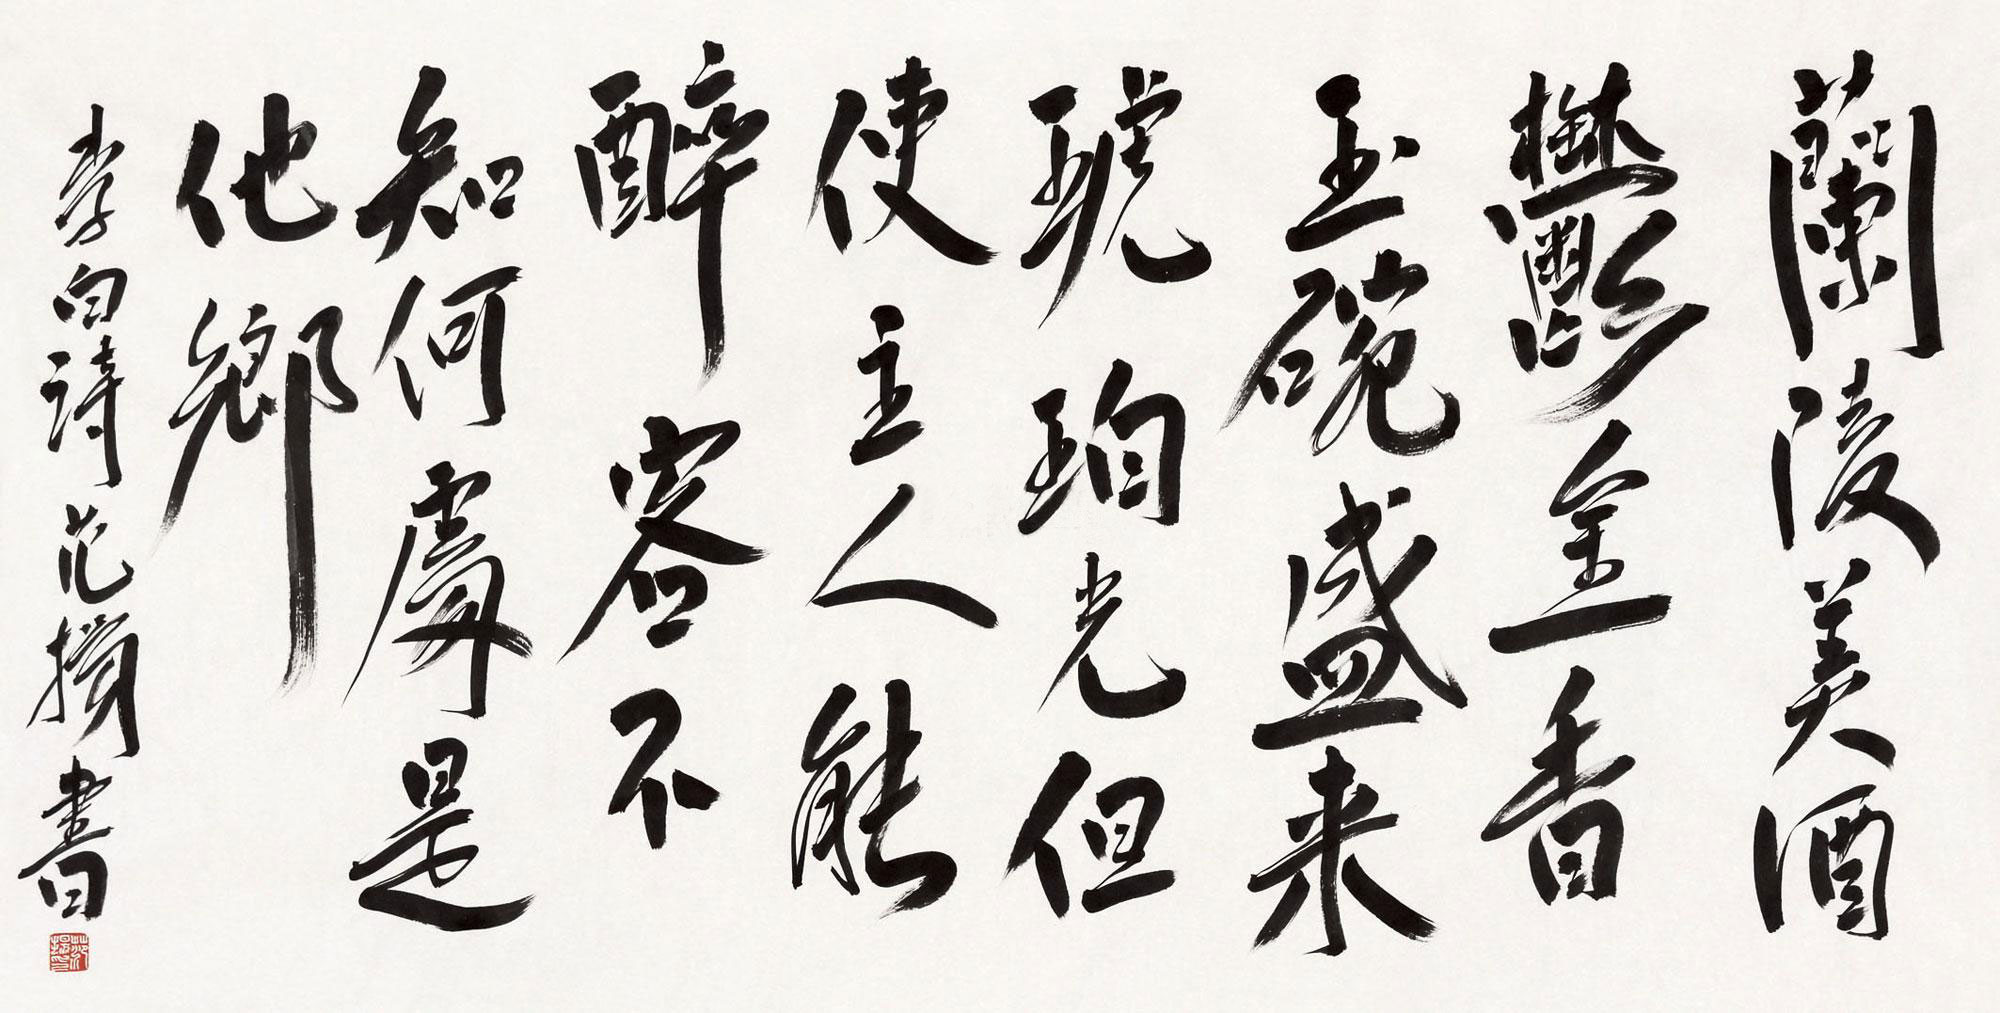 蘭陵美酒
鬱金香
玉碗盛来
琥珀光但
使主人能
醉客不
知何處是
他鄉
李白詩范揚書